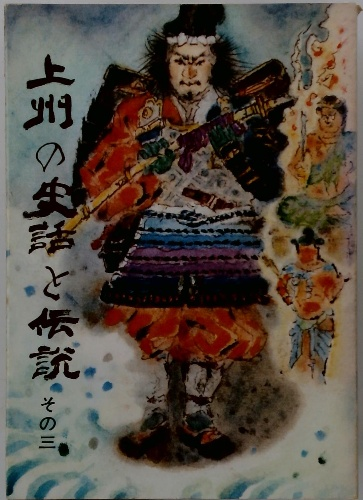 上州の史話と伝説
その三